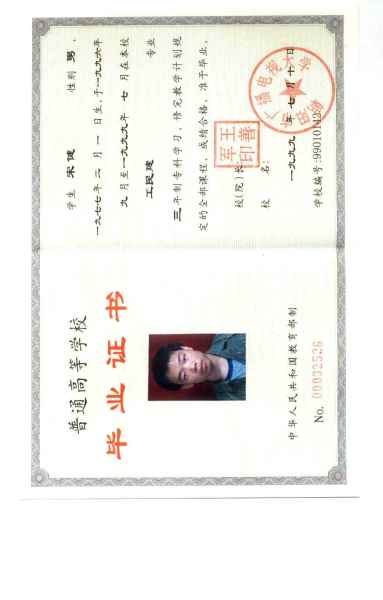 普通高等学校
毕业证书
中华人民共和国教育部制
No. 00032526
学生 宋健 性别 男，
一九七七年 二 月 一 日生，于一九九六年
九 月至一九九九年 七 月在本校
工民建 专业
三 年制专科学习，修完教学计划规
定的全部课程，成绩合格，准予毕业。
校（院）长：
王善军印
校 名：
一九九九 年 七 月 十 日
学校编号：99010142